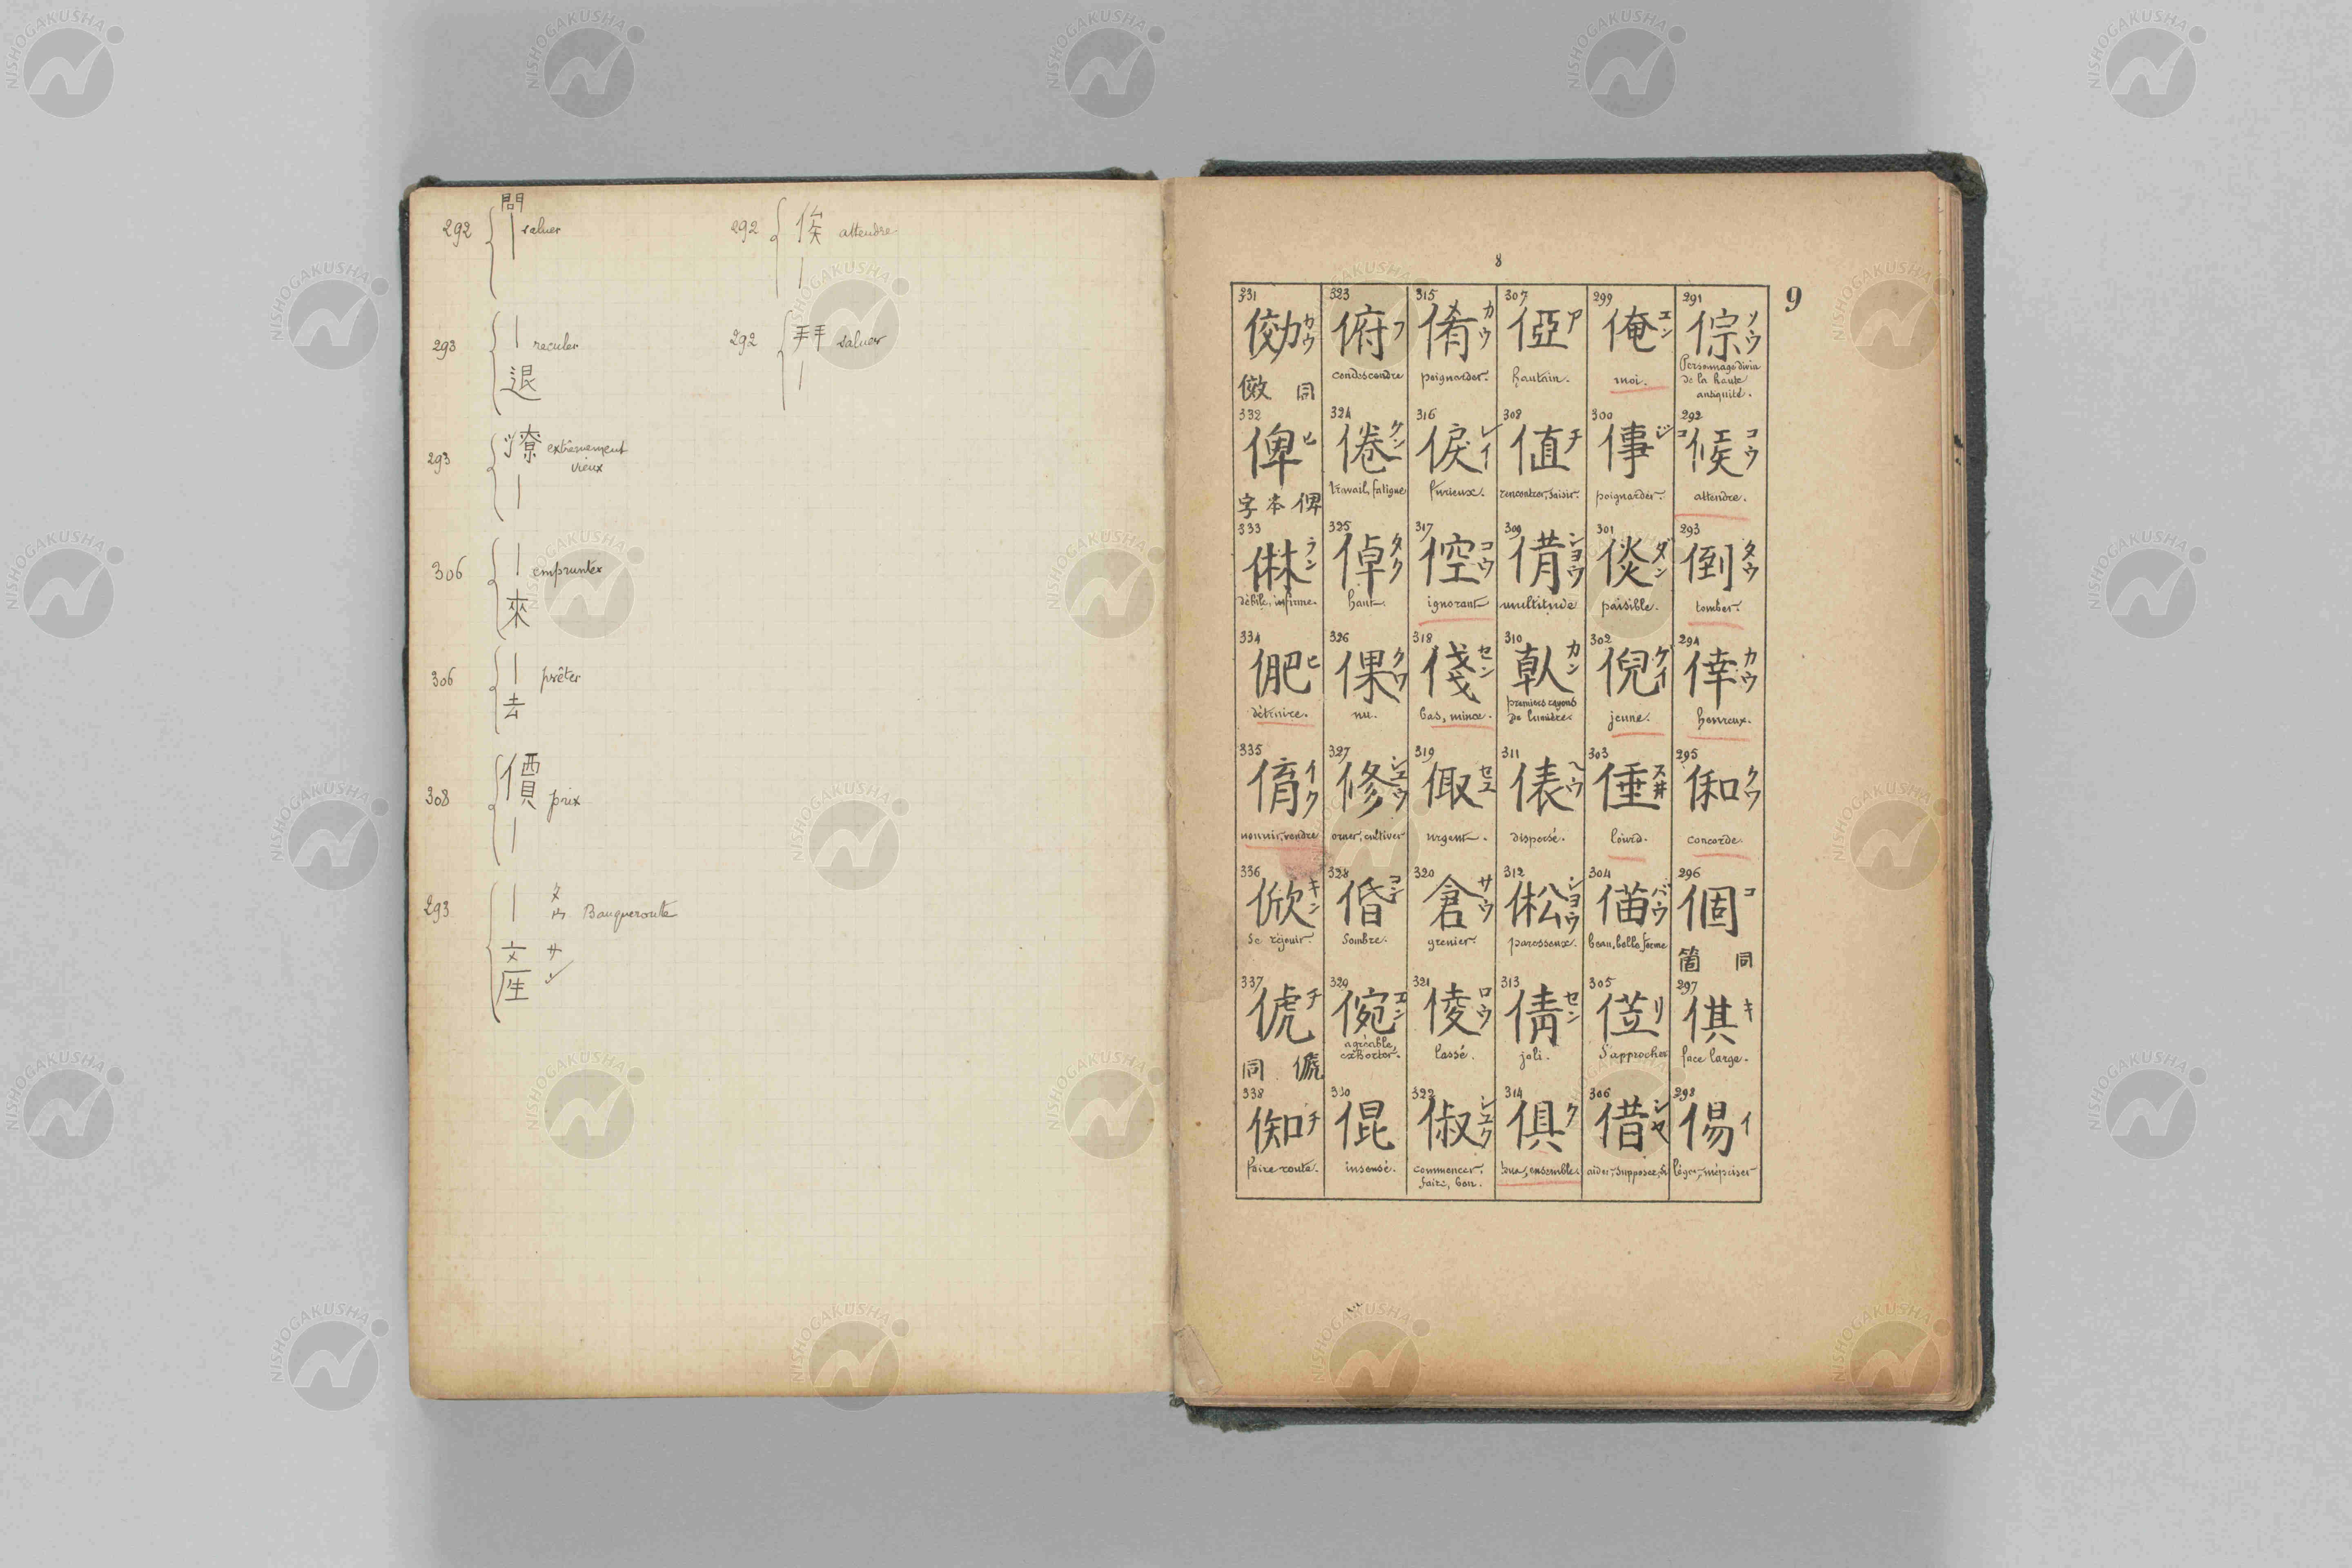 292 問 | saluer
293 | reculer
退
293 潦 extrêmement
vieux
|
306 | emprunter
來
306 | prêter
去
308 價 prix
|
293 | タウ Banqueroute
產 サン
292 俟 attendre
|
292 拜 saluer
|
8
9
291 倧 ソウ
Personnage divin
de la haute
antiquité.
292 候 コウ コ
attendre.
293 倒 タウ
tomber.
294 倖 カウ
heureux.
295 俰 クワ
concorde.
296 個 コ
箇 同
297 倛 キ
face large.
298 傷 イ
léger, mépriser
299 俺 エン
moi.
300 倳 ジ
poignarder.
301 倓 ダン
paisible.
302 倪 ケイ
jeune.
303 倕 スヰ
lourd.
304 偤 バウ
beau, belle forme
305 莅 リ
S'approcher
306 借 シヤ
aider, supposer, si
307 俹 ア
hautain.
308 値 チ
rencontrer, saisir.
309 倄 シヨウ
multitude
310 倝 カン
premiers rayons
de lumière.
311 俵 ヘウ
dispersé.
312 倯 シヨウ
paresseux.
313 倩 セン
joli.
314 俱 ク
tous, ensemble.
315 倄 カウ
poignarder.
316 候 レイ
furieux.
317 倥 コウ
ignorant
318 俴 セン
bas, mince.
319 倁 セエ
urgent.
320 倉 サウ
grenier.
321 倰 ロウ
lassé.
322 俶 シユク
commencer.
faire, bon.
323 俯 フ
condescendre
324 倦 ケン
travail, fatigue
325 倬 タク
haut.
326 倮 クワ
nu.
327 修 シユウ
orner, cultiver
328 偕 コン
sombre.
329 倇 エン
agréable,
exhorter.
330 倱
insensé.
331 倣 カウ
傚 同
332 俾 ヒ
字 本 俾
333 俕 ラン
débile, infirme.
334 俷 ヒ
détruire.
335 倄 イク
nourrir, vendre
336 俽 キン
se réjouir.
337 俿 チ
同 傂
338 倁 チ
faire route.
NISHOGAKUSHA